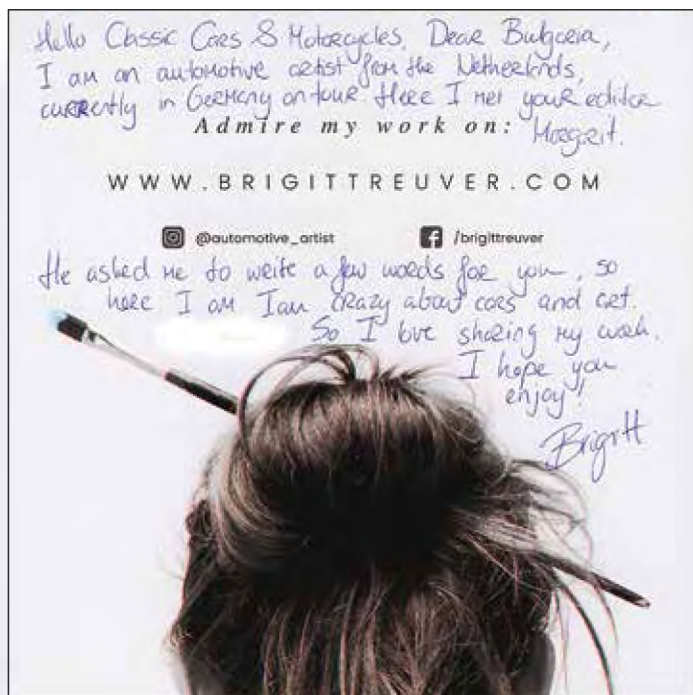 Hello Classic Cars & Motorcycles, Dear Bulgaria,
I am an automotive artist from the Netherlands,
currently in Germany on tour. Here I met your editor
Margrit.
Admire my work on:
WWW.BRIGITTREUVER.COM
@automotive_artist
/brigittreuver
He asked me to write a few words for you, so
here I am I am crazy about cars and art.
So I love sharing my work.
I hope you
enjoy!
Brigitt